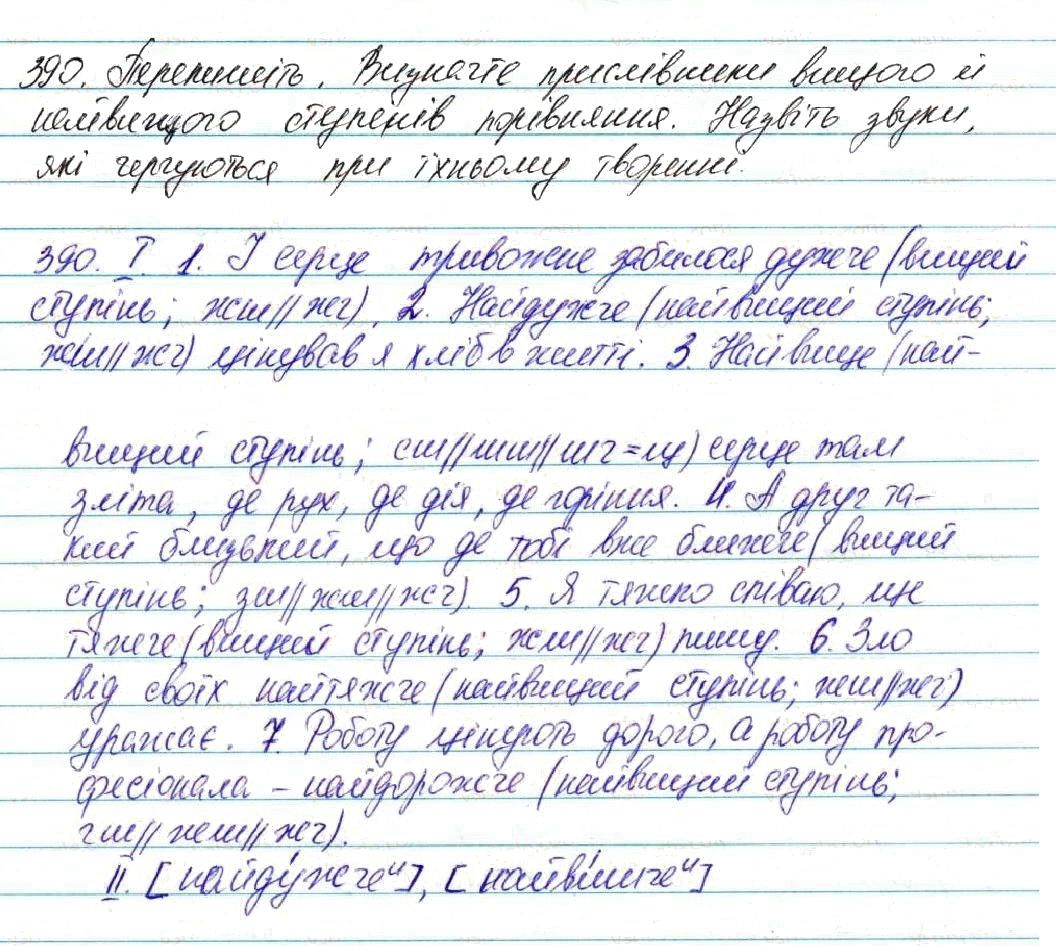 390. Перепишіть. Визначте прислівники вищого й
найвищого ступенів порівняння. Назвіть звуки,
які чергуються при їхньому творенні.
390. I. 1. І серце тривожне забилося дужче (вищий
ступінь; жш//жч). 2. Найдужче (найвищий ступінь;
жш//жч) цінував я хліб в житті. 3. Найвище (най-
вищий ступінь; сш//шш//шч=щ) серце там
зліта, де рух, де дія, де горіння. 4. А друг та-
кий близький, що де тобі вже ближче (вищий
ступінь; зш//жш//жч). 5. Я тяжко співаю, ще
тяжче (вищий ступінь; жш//жч) пишу. 6. Зло
від своїх найтяжче (найвищий ступінь; жш//жч)
уражає. 7. Роботу цінують дорого, а роботу про-
фесіонала – найдорожче (найвищий ступінь;
гш//жш//жч).
II. [найду́жчеᶦ], [найви́шчеᶦ]